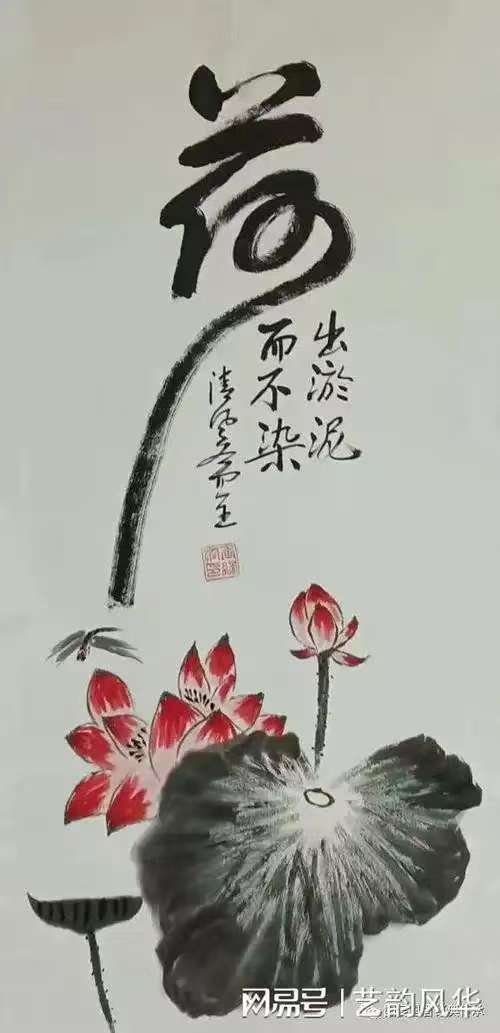 荷
出淤泥
而不染
清风斋主
网易号 | 艺韵风华